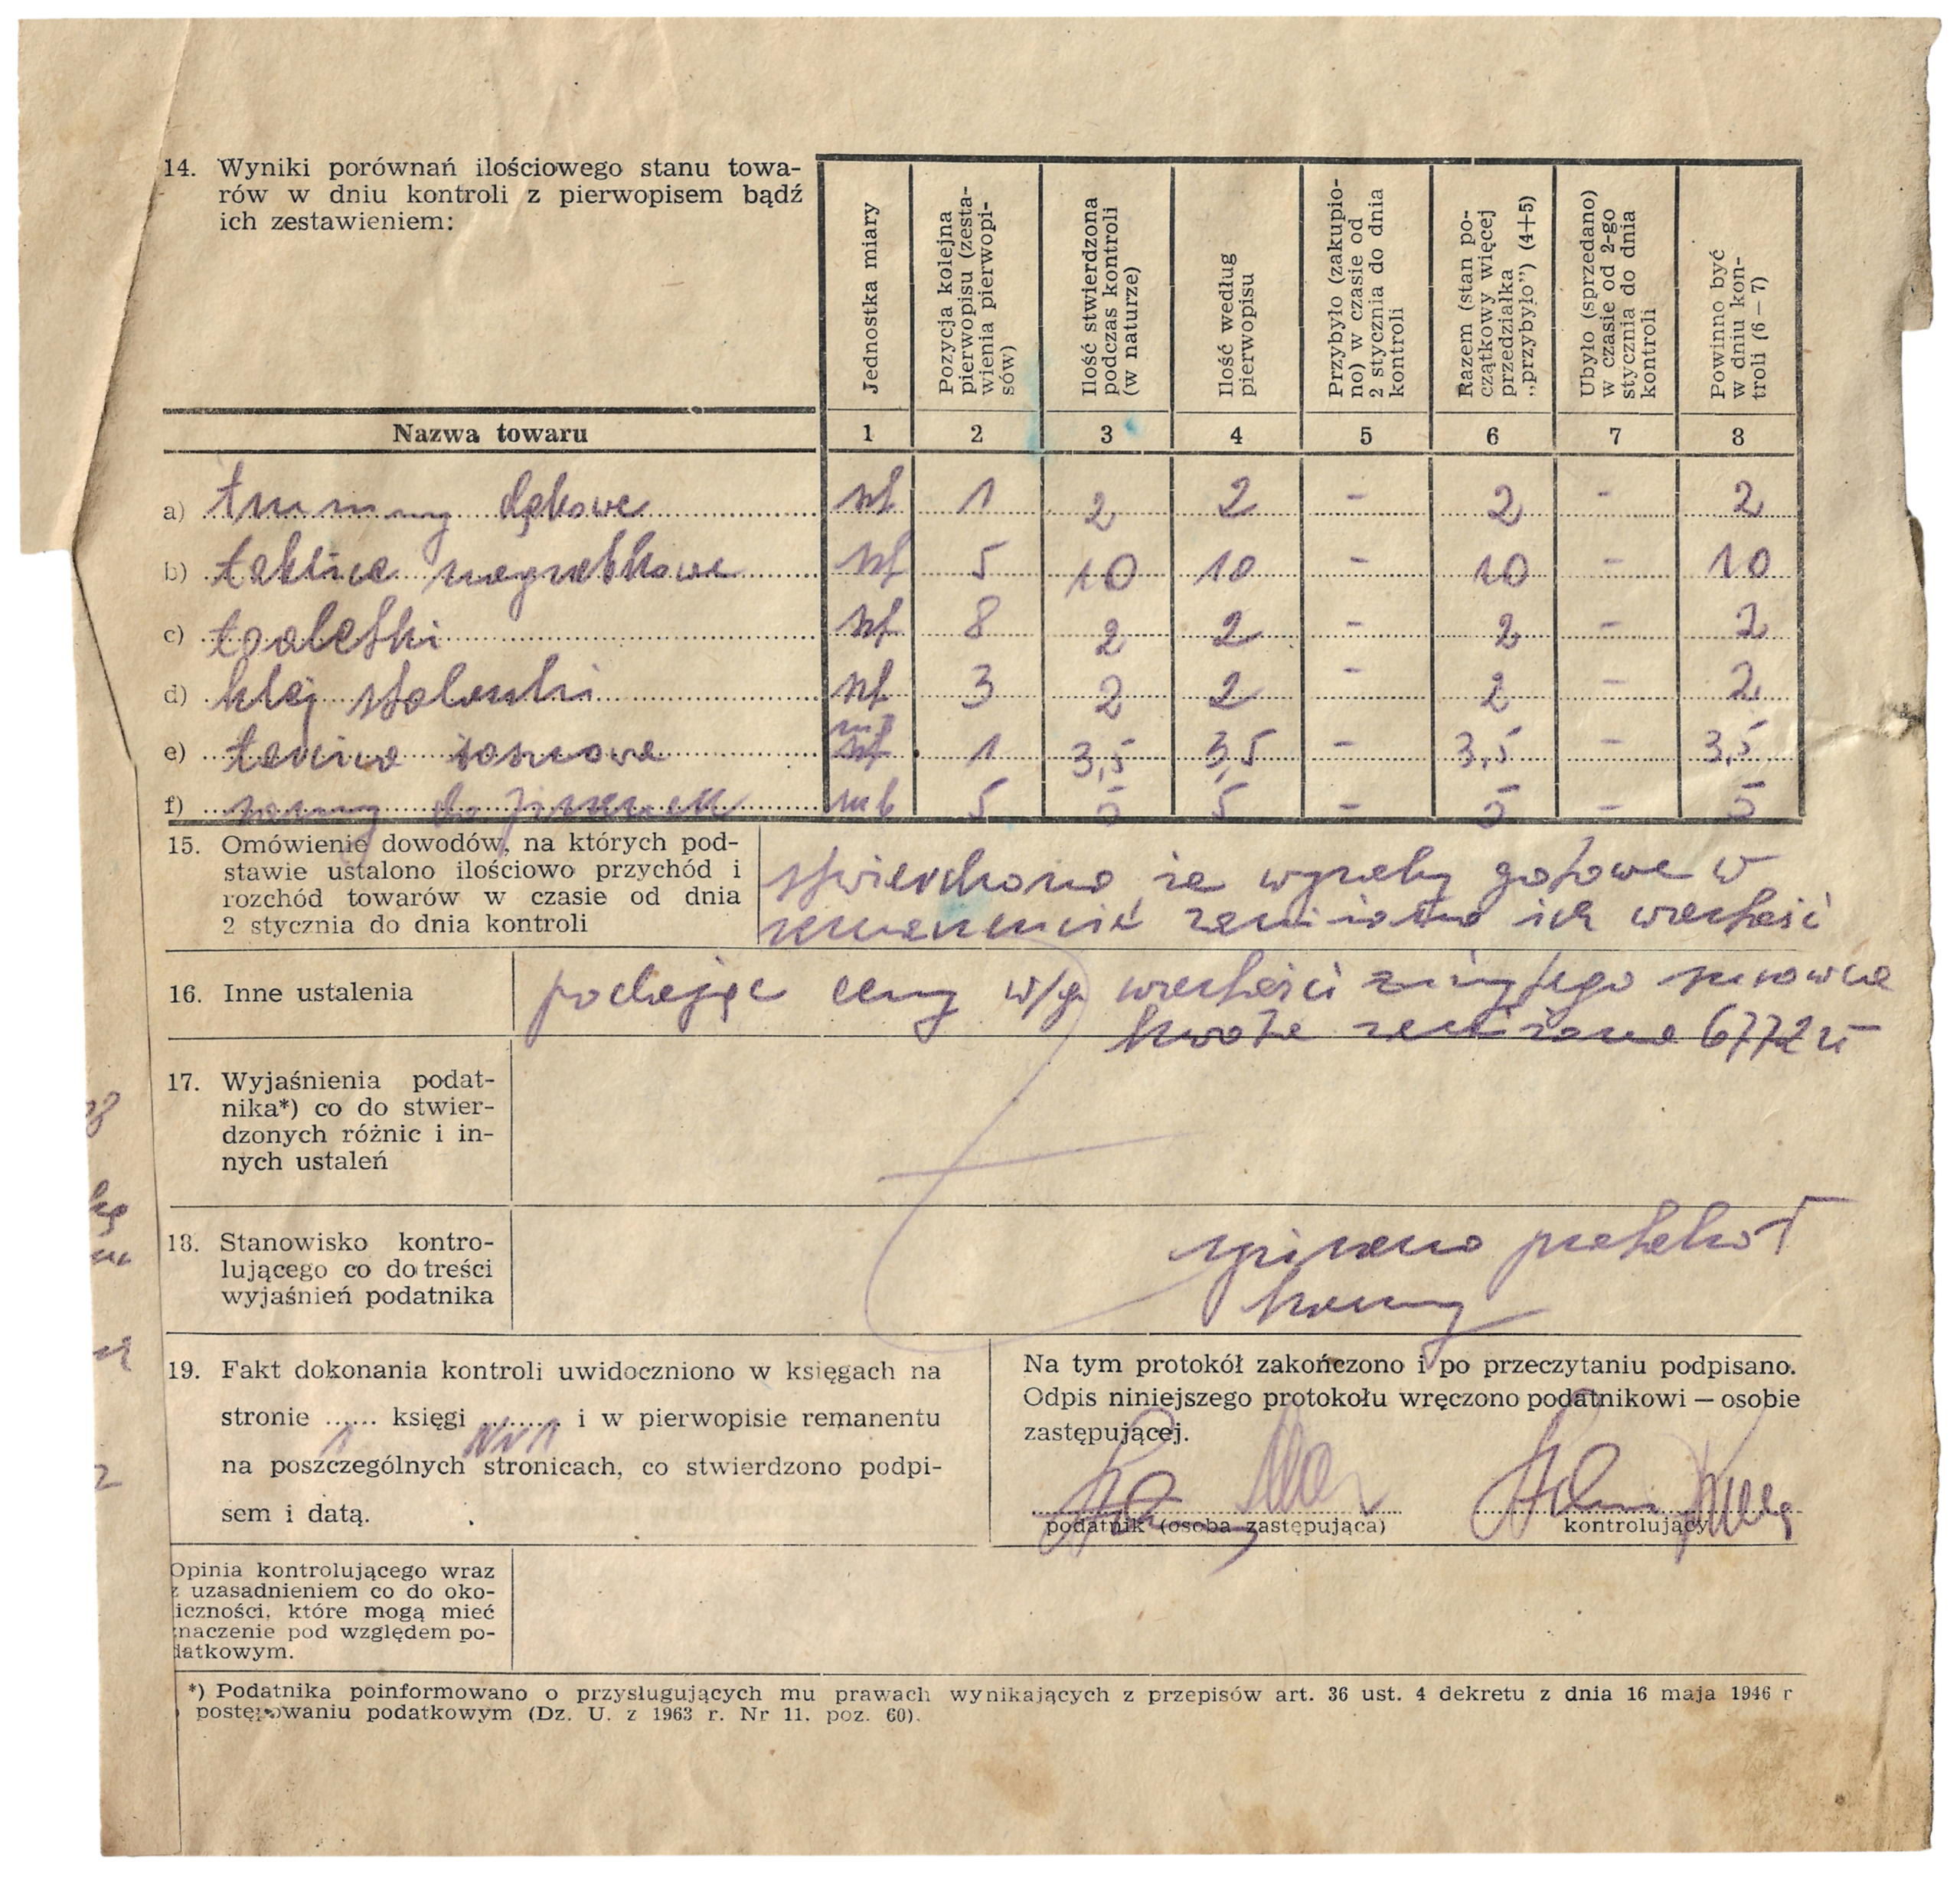 14. Wyniki porównań ilościowego stanu towa-
rów w dniu kontroli z pierwopisem bądź
ich zestawieniem:
Jednostka miary
Pozycja kolejna
pierwopisu (zesta-
wienia pierwopi-
sów)
Ilość stwierdzona
podczas kontroli
(w naturze)
Ilość według
pierwopisu
Przybyło (zakupio-
no) w czasie od
2 stycznia do dnia
kontroli
Razem (stan po-
czątkowy więcej
przedziałka
„przybyło") (4+5)
Ubyło (sprzedano)
w czasie od 2-go
stycznia do dnia
kontroli
Powinno być
w dniu kon-
troli (6 — 7)
Nazwa towaru 1 2 3 4 5 6 7 8
a) trumny dębowe szt 1 2 2 - 2 - 2
b) tablice nagrobkowe szt 5 10 10 - 10 - 10
c) toaletki szt 8 2 2 - 2 - 2
d) klej stolarski szt 3 2 2 - 2 - 2
e) tarcica sosnowa m3 1 3,5 3,5 - 3,5 - 3,5
f) do mb 5 5 5 - 5 - 5
15. Omówienie dowodów, na których pod-
stawie ustalono ilościowo przychód i
rozchód towarów w czasie od dnia
2 stycznia do dnia kontroli
stwierdzono że wyroby gotowe w
remanencie zaniżono ich wartość
16. Inne ustalenia
podając ceny w/g wartości zużytego surowca
kwota zaniżona 6772 zł
17. Wyjaśnienia podat-
nika*) co do stwier-
dzonych różnic i in-
nych ustaleń
18. Stanowisko kontro-
lującego co do treści
wyjaśnień podatnika
spisano protokół
karny
19. Fakt dokonania kontroli uwidoczniono w księgach na
stronie ...... księgi .......... i w pierwopisie remanentu
1 Nr 1
na poszczególnych stronicach, co stwierdzono podpi-
sem i datą.
Na tym protokół zakończono i po przeczytaniu podpisano.
Odpis niniejszego protokołu wręczono podatnikowi — osobie
zastępującej.
podatnik (osoba zastępująca)
kontrolujący
Opinia kontrolującego wraz
z uzasadnieniem co do oko-
iczności, które mogą mieć
znaczenie pod względem po-
datkowym.
*) Podatnika poinformowano o przysługujących mu prawach wynikających z przepisów art. 36 ust. 4 dekretu z dnia 16 maja 1946 r
postępowaniu podatkowym (Dz. U. z 1963 r. Nr 11, poz. 60).